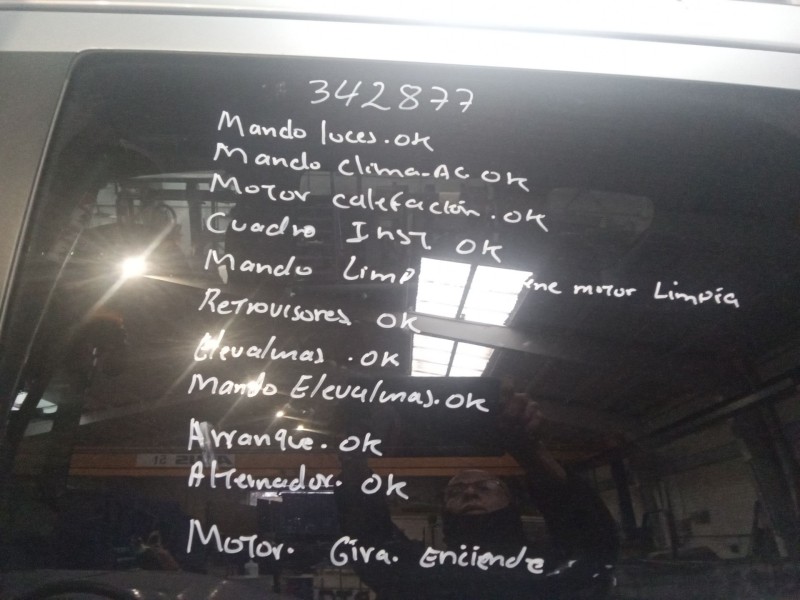 342877
Mando luces. OK
Mando Clima-AC OK
Motor calefación. OK
Cuadro Inst. OK
Mando Limp motor Limpia
Retrovisores OK
Elevalunas. OK
Mando Elevalunas. OK
Arranque. OK
Alternador. OK
Motor. Gira. Enciende